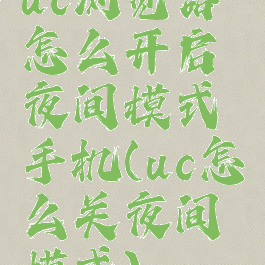 uc浏览器
怎么开启
夜间模式
手机(uc怎
么关夜间
模式)